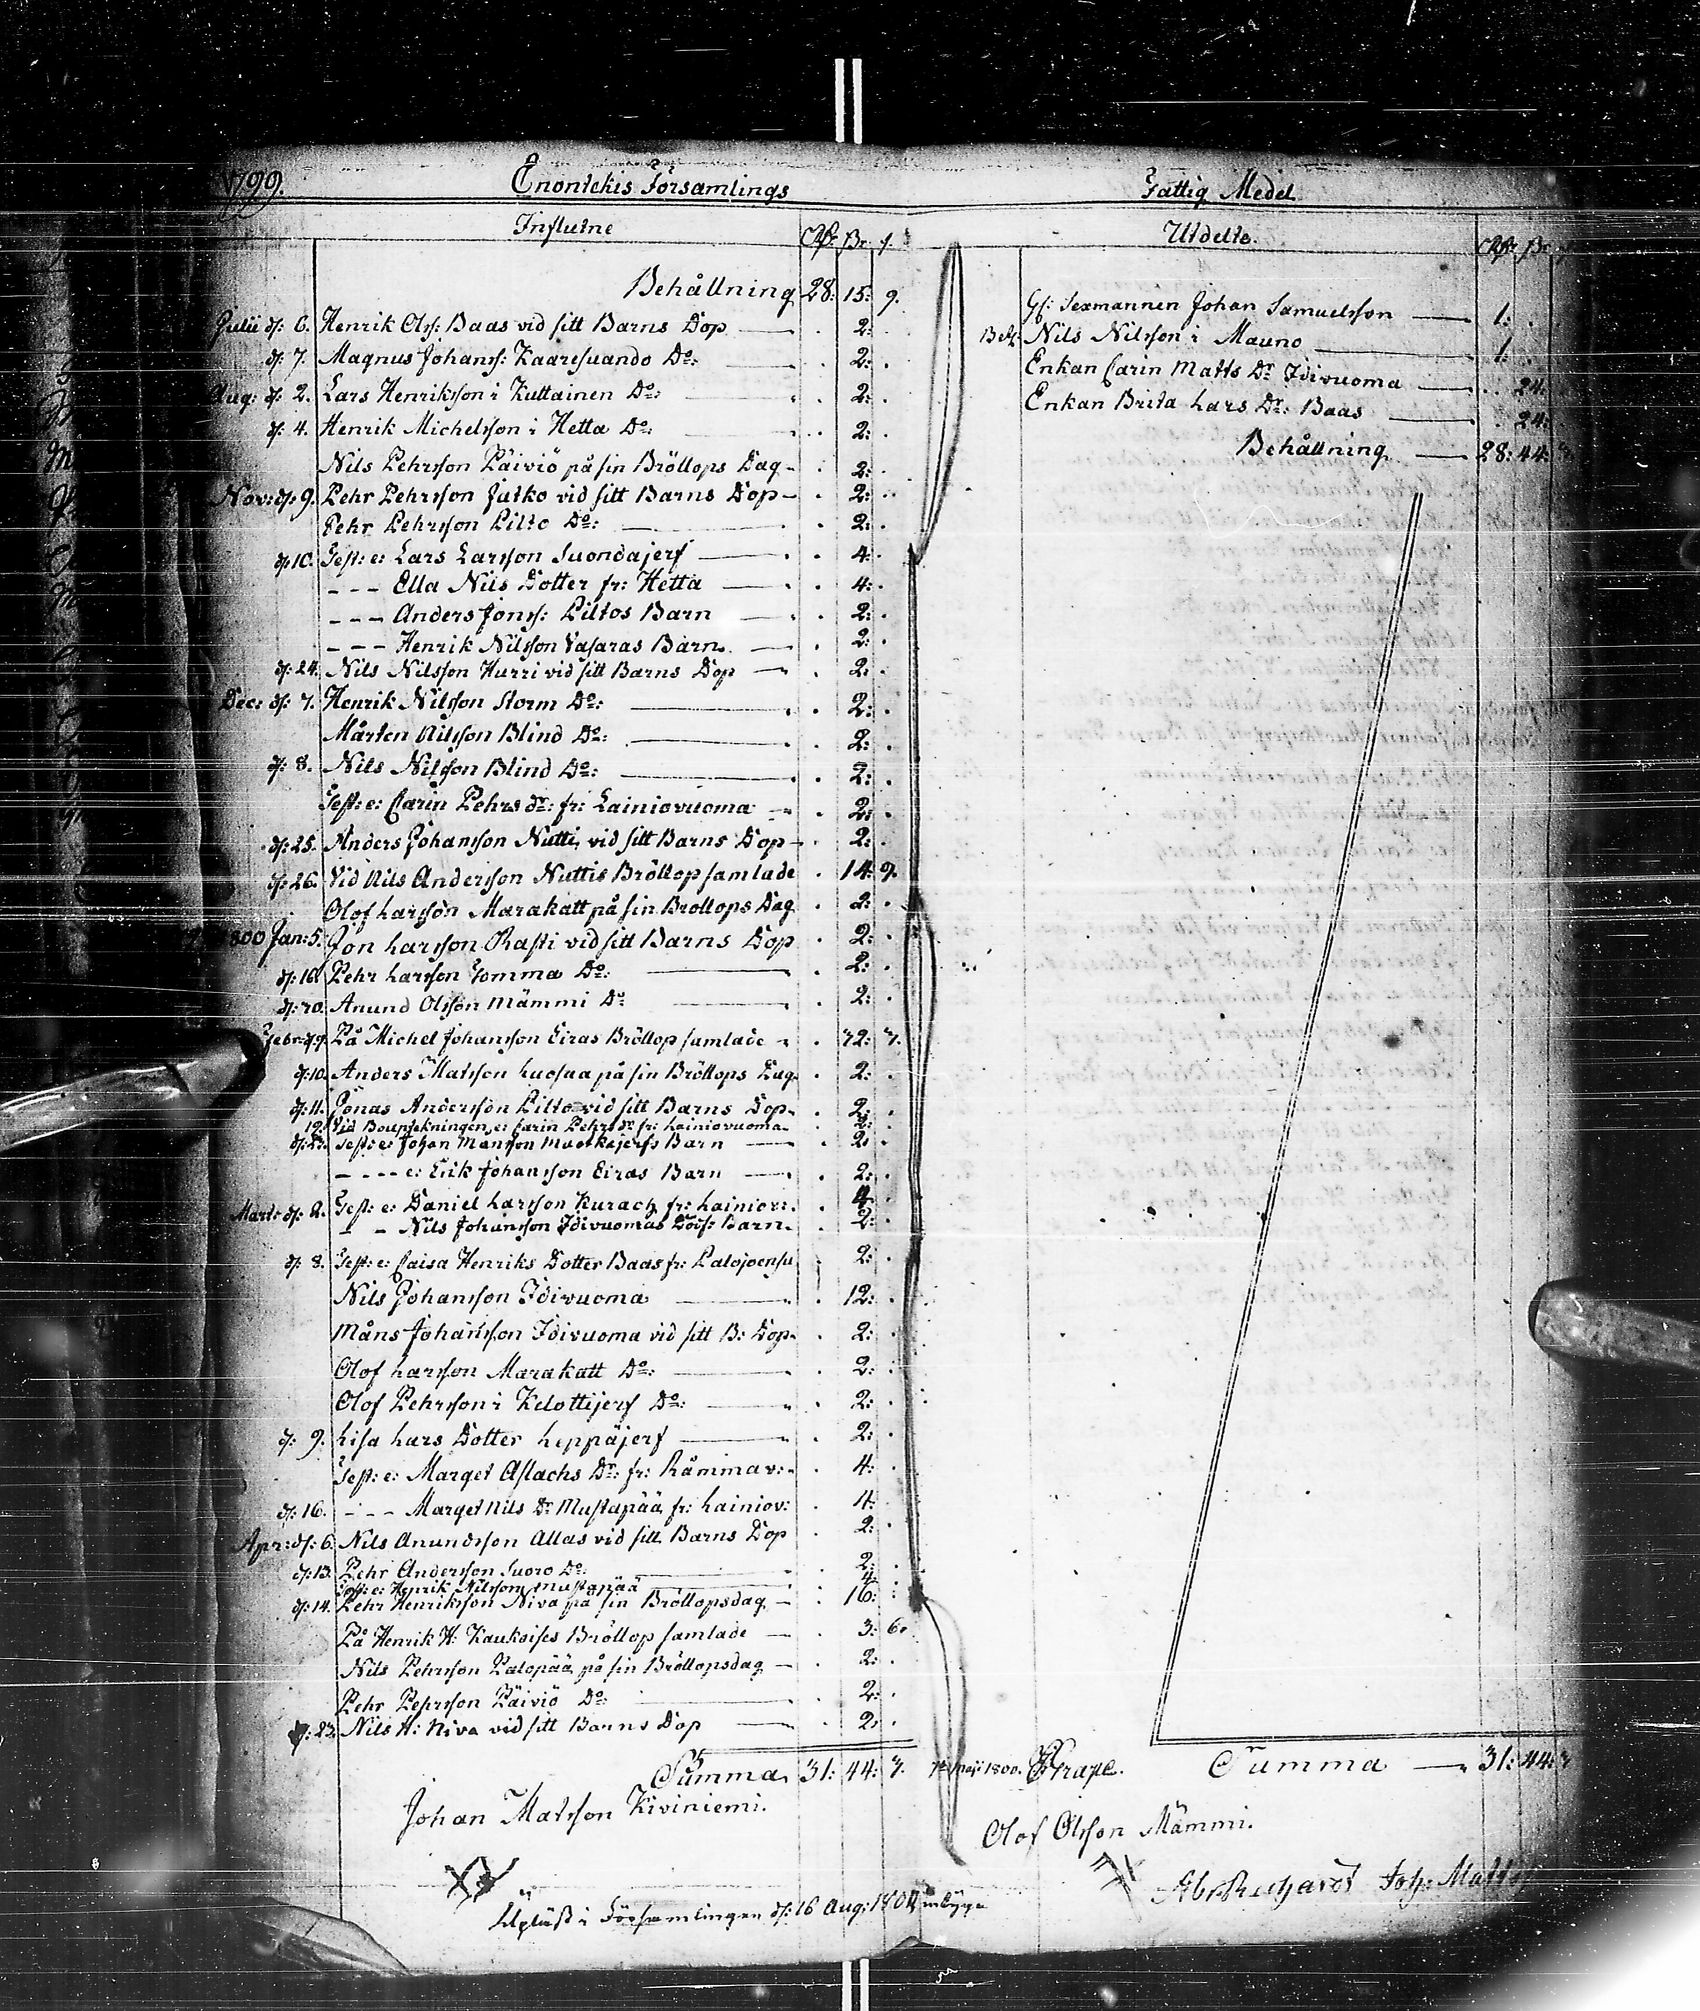 1799.
Enontekis Församlings
Influtne Rdr: Sr. r.
Behållning 28: 15: 9.
Julii d: 6. Henrik Ols: Baas vid sitt Barns Dop 2:
d: 7. Magnus Johans: Kaaresuando Do: 2:
Aug: d: 2. Lars Henriksson i Kuttainen Do: 2:
d: 4. Henrik Michelsson i Hetta Do: 2:
Nils Pehrsson Päiviö på sin Bröllops Dag 2:
Nov: d: 9. Pehr Pehrsson Jutko vid sitt Barns Dop 2:
Pehr Pehrsson Pilto Do: 2:
d: 10. Test: e: Lars Larsson Suondajerf 4:
- - - Ella Nils Dotter fr: Hetta 4:
- - - Anders Jons: Piltos Barn 2:
- - - Henrik Nilsson Vasaras Barn 2:
d: 24. Nils Nilsson Hurri vid sitt Barns Dop 2:
Dec: d: 7. Henrik Nilsson Storm Do: 2:
Mårten Nilsson Blind Do: 2:
d: 8. Nils Nilsson Blind Do: 2:
Test: e: Carin Pehrs dr: fr: Lainiovuoma 2:
d: 25. Anders Johansson Nutti vid sitt Barns Dop 2:
d: 26. Vid Nils Andersson Nuttis Bröllop samlade 14: 9.
Olof Larsson Marakatt på sin Bröllops Dag 2:
1800 Jan: 5. Jon Larsson Rasti vid sitt Barns Dop 2:
d: 16. Pehr Larsson Tomma Do: 2:
d: 20. Anund Olsson Mämmi Do 2:
Febr: d: 9. På Michel Johansson Eiras Bröllop samlade 32: 3.
d: 10. Anders Matsson Luosua på sin Bröllops Dag 2:
d: 11. Jonas Andersson Pilto vid sitt Barns Dop 2:
12. Vid Bouptekningen e: Carin Pehrs dr fr: Lainiovuoma 2:
d: 23. Test: e: Johan Månsson Muotkajerfs Barn 2:
- - - - e: Erik Johansson Eiras Barn 2:
Mart: d: 2. Test: e: Daniel Larsson Kurack fr: Lainiov: 4:
- - Nils Johansson Idivuomas Döfs: Barn 2:
d: 8. Test: e: Caisa Henriks Dotter Baas fr: Palojoensu 2:
Nils Johansson Idivuoma 12:
Måns Johansson Idivuoma vid sitt B: Dop 2:
Olof Larsson Marakatt Do: 2:
Olof Pehrsson i Kelottijerf Do: 2:
d: 9. Lisa Lars Dotter Leppäjerf 2:
Test: e: Marget Aslachs Dr: fr: Råmmav: 4:
d: 16. - - - Marget Nils Dr Mustapää fr: Lainiov: 4:
Apr: d: 6. Nils Anundsson Allas vid sitt Barns Dop 2:
d: 13. Pehr Andersson Suoro Do: 2:
Test: e: Henrik Nilsson Mustapää 4:
d: 14. Pehr Henriksson Niva på sin Bröllopsdag 16:
På Henrik H: Kauksises Bröllop samlade 3: 6.
Nils Pehrsson Palopää på sin Bröllopsdag 2:
Pehr Pehrsson Päiviö Do: 2:
d: 23. Nils H: Niva vid sitt Barns Dop 2:
Summa 31: 44: 3.
Johan Matsson Kiviniemi.
Upläst i Församlingen d: 16 Aug: 1804
Fattig Medel
Utdelte. Rdr Sr
Gf: Sexmannen Johan Samuelsson 1:
Nils Nilsson i Mauno 1:
Enkan Carin Matts Dr Idivuoma 24:
Enkan Brita Lars Dr: Baas 24:
Behållning 28: 44: 3
Maji 1800. Grape. Summa 31: 44: 3
Olof Olsson Mämmi.
Abr: Rechardt Joh: Matts